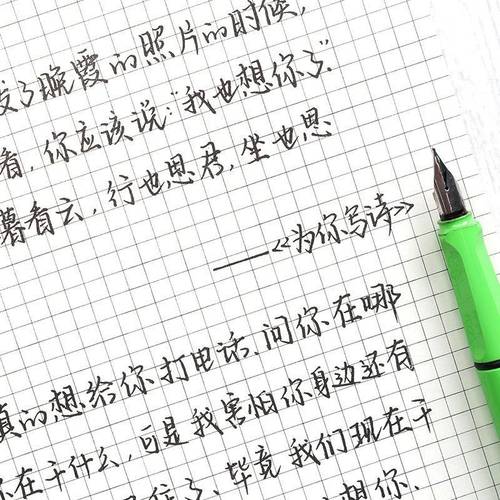 发了晚霞的照片的时候,
看,你应该说:"我也想你了".
暮看云,行也思君,坐也思
——《为你写诗》
真的想给你打电话、问你在哪
你在干什么,可是我害怕你身边还有
了、毕竟我们现在干
想你、